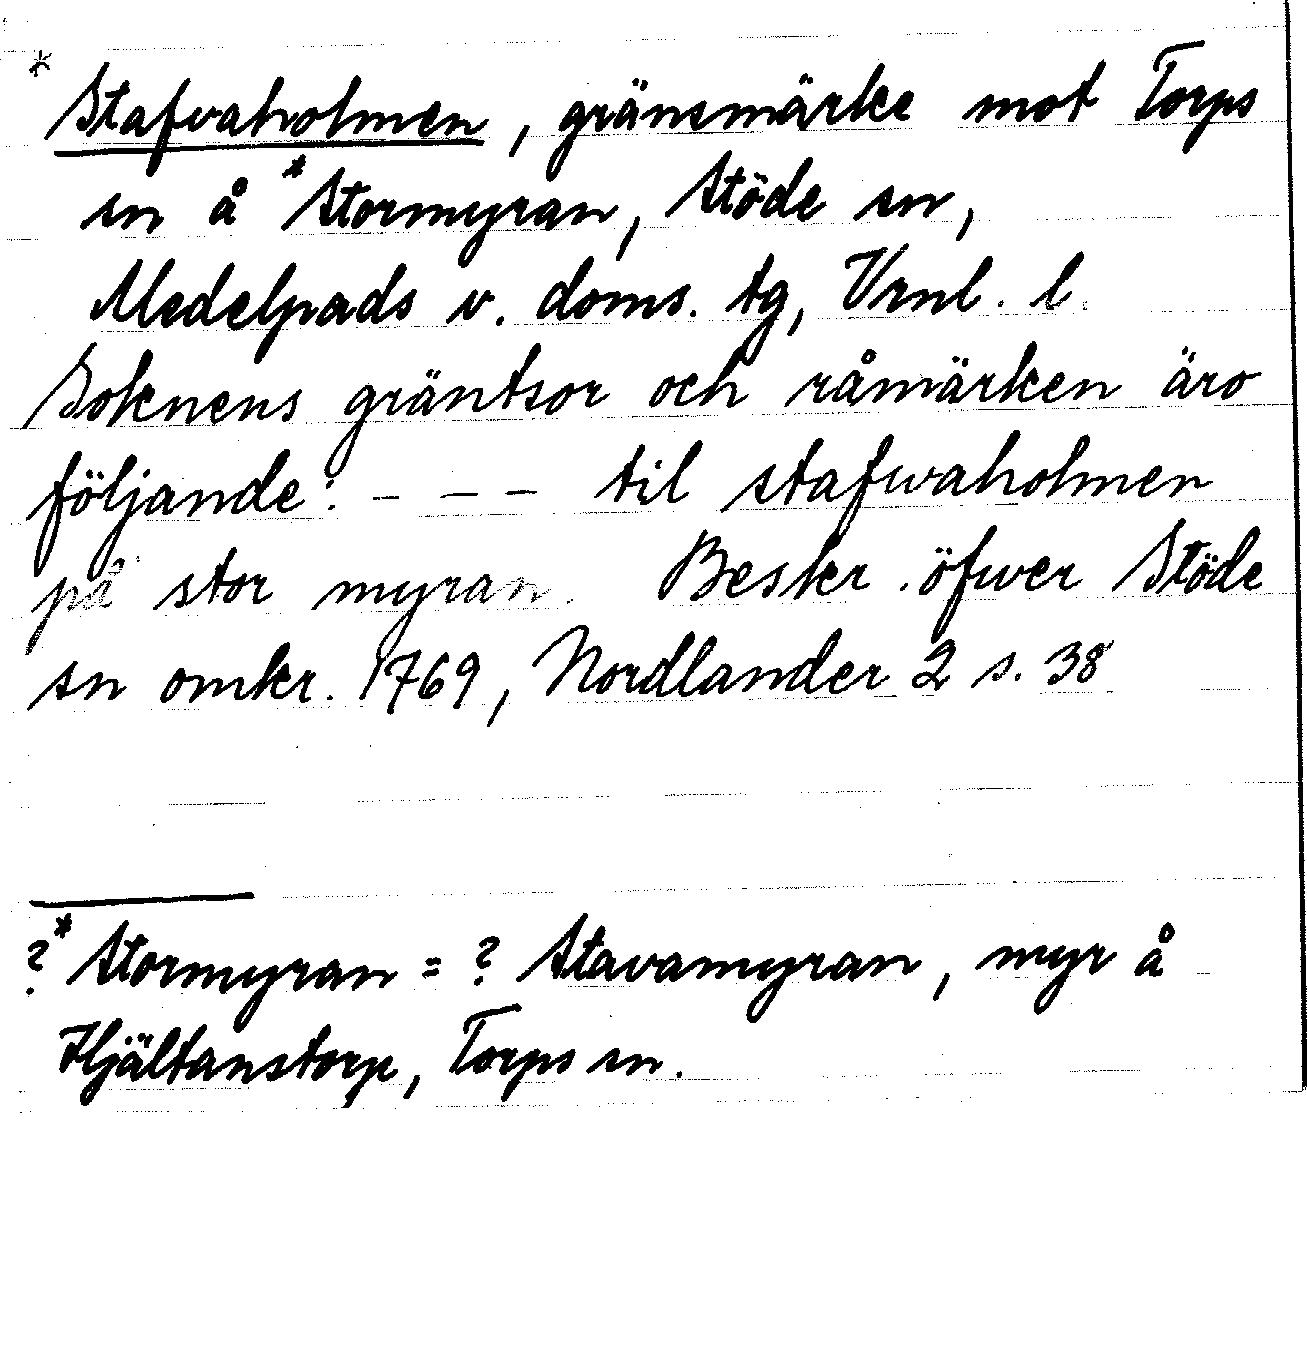 * Stafvaholmen, gränsmärke mot Torps
sn å *Stormyran, Stöde sn,
Medelpads v. doms. tg, Vrnl. l.
Soknens gräntsor och råmärken äro
följande: – – – til stafwaholmen
på stor myran. Beskr. öfwer Stöde
sn omkr. 1769, Nordlander 2 s. 38
?*Stormyran = ? Stavamyran, myr å
Hjältanstorp, Torps sn.